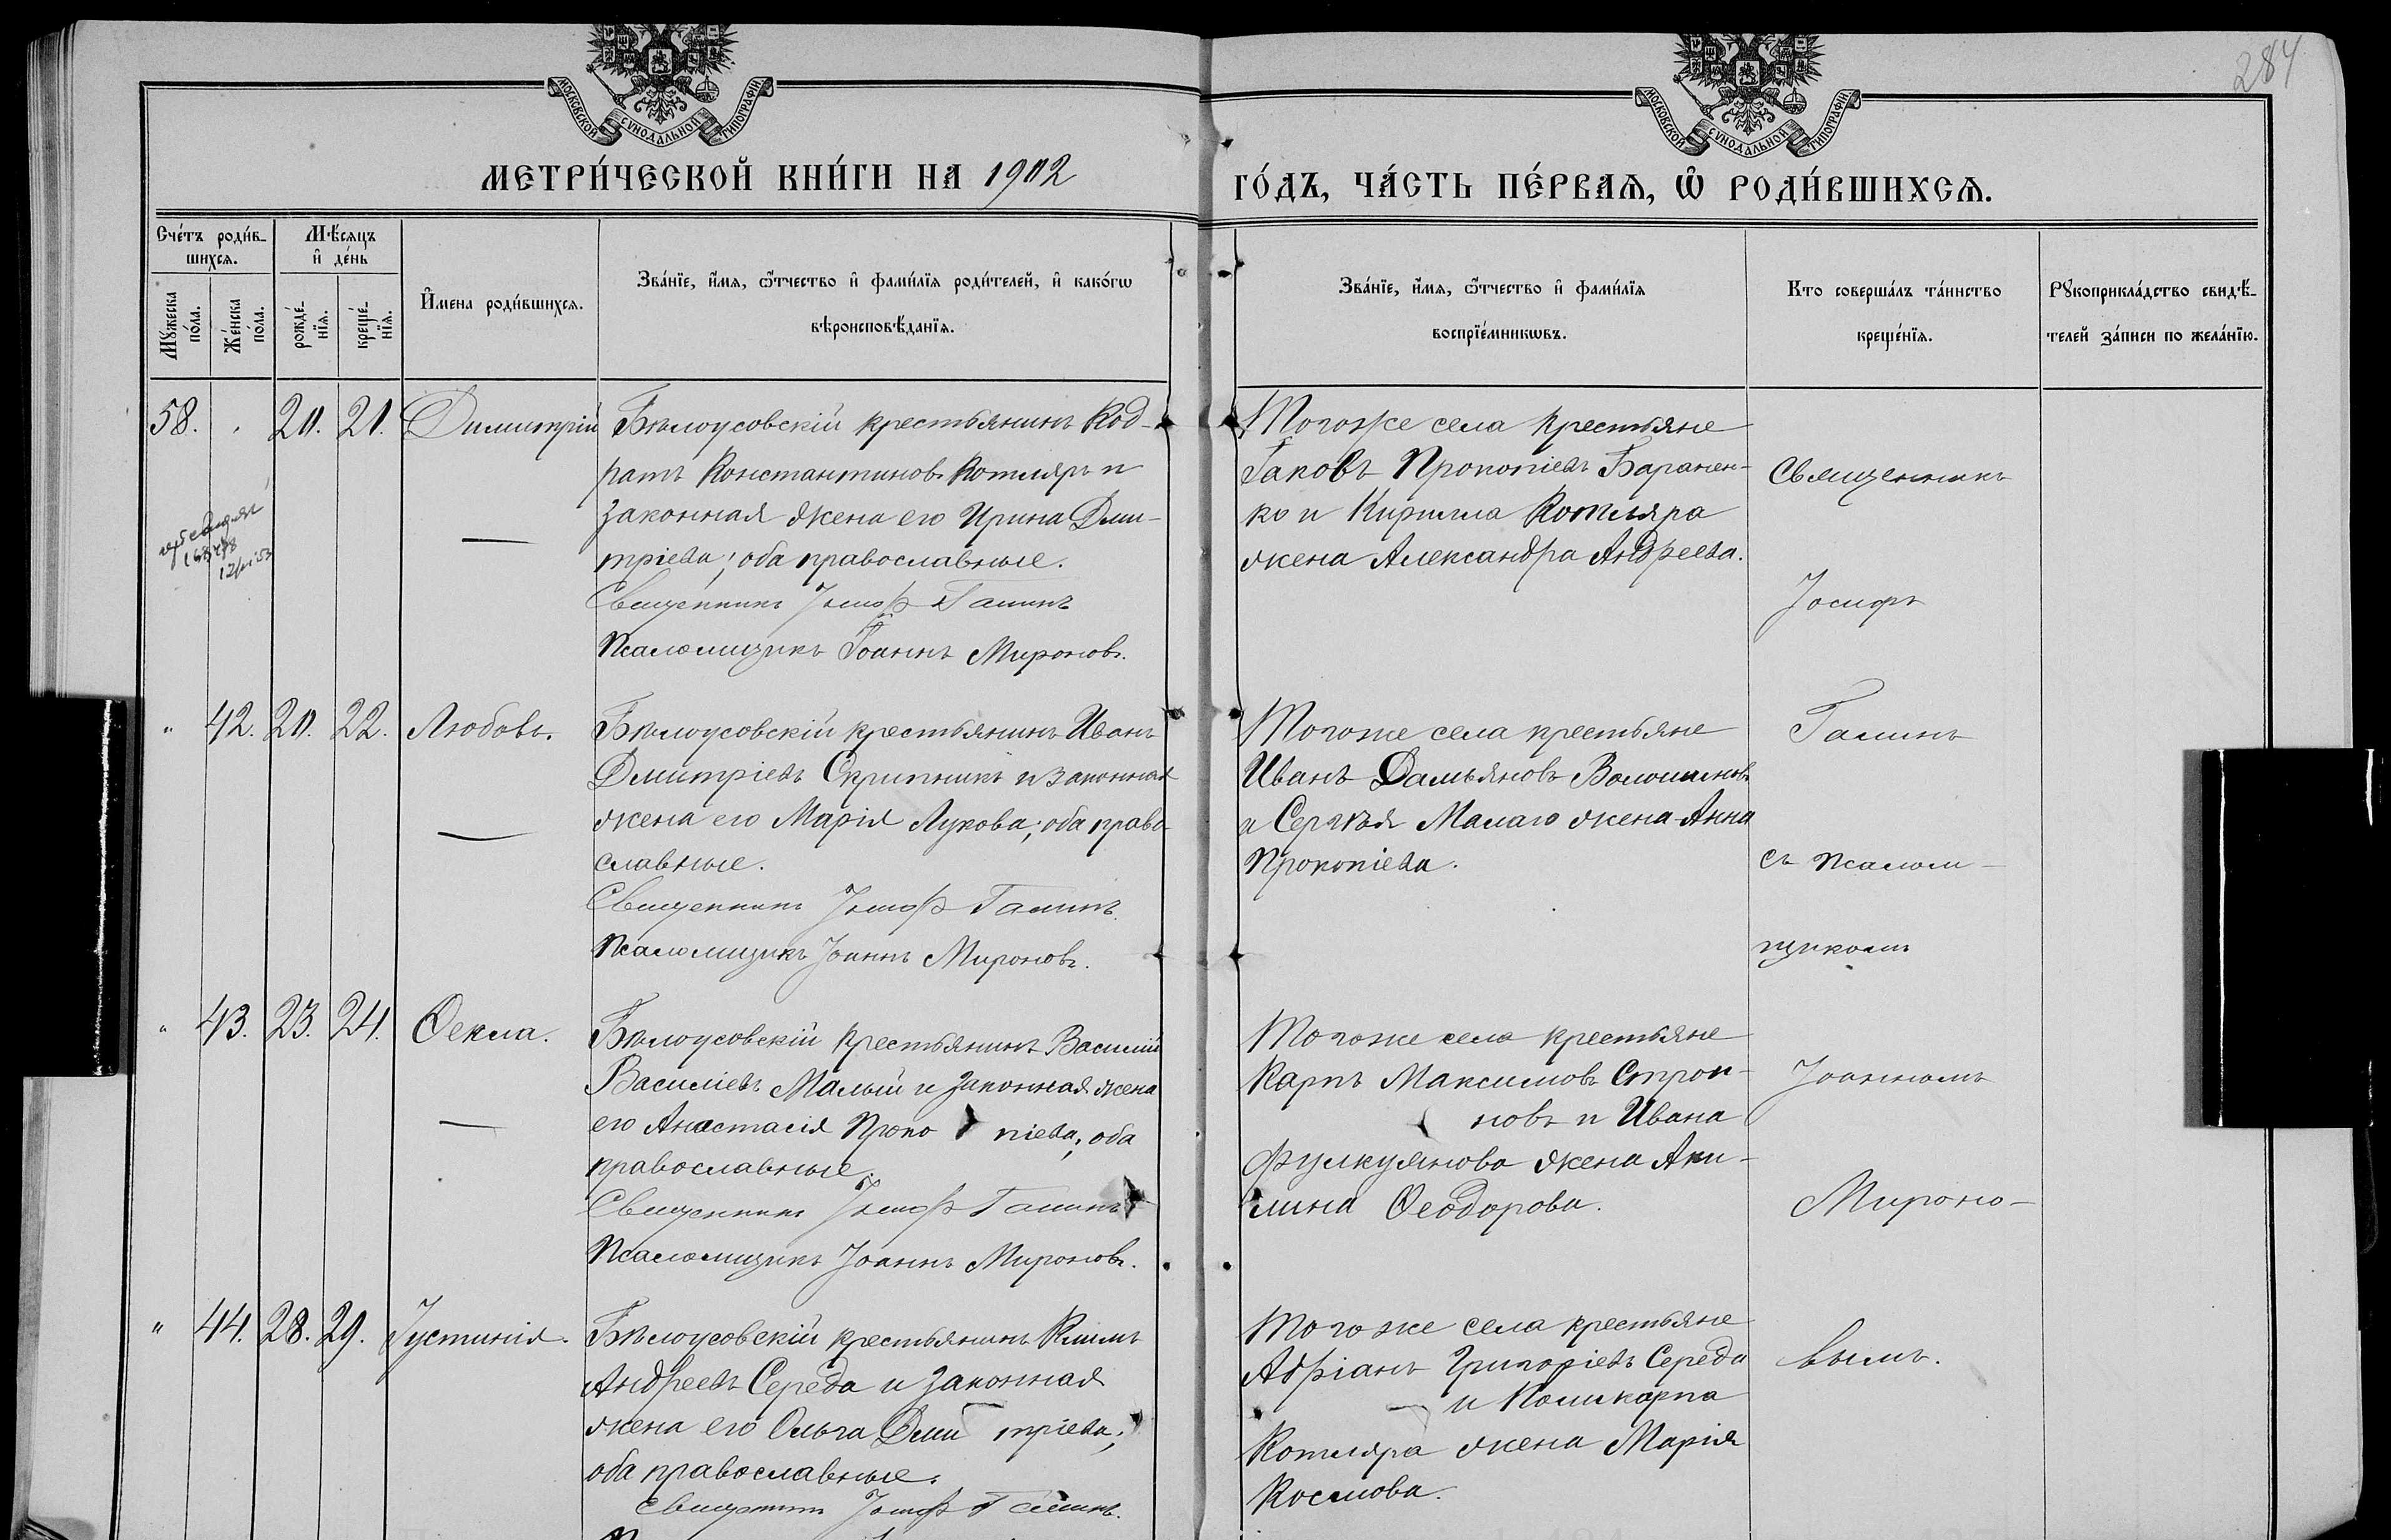 284
МОСКОВСКОЙ СѴНОДАЛЬНОЙ ТИПОГРАФІИ
МОСКОВСКОЙ СѴНОДАЛЬНОЙ ТИПОГРАФІИ
МЕТРИ́ЧЕСКОЙ КНИ́ГИ НА 1902
ГО́ДЪ, ЧА́СТЬ ПЕ́РВАѦ, Ѽ РОДИ́ВШИХСѦ.
Сче́тъ роди́в-
шихсѧ.
Мѣ́сѧцъ
и҆ де́нь
Мꙋ́жеска
по́ла.
Же́нска
по́ла.
рожде́-
нїѧ.
креще́-
нїѧ.
И҆мена роди́вшихсѧ.
Зва́нїе, и҆́мѧ, ѻ҆́тчество и҆ фами́лїѧ роди́телей, и҆ како́гѡ
вѣроисповѣ́данїѧ.
Зва́нїе, и҆́мѧ, ѻ҆́тчество и҆ фами́лїѧ
воспрїе́мникѡвъ.
Кто соверша́лъ та́инство
креще́нїѧ.
Рꙋкоприкла́дство свидѣ́-
телей за́писи по жела́нїю.
58. 20. 21. Димитрій
Бѣлоусовскій крестьянинъ Код-
ратъ Константиновъ Котляръ и
законная жена его Ирина Дми-
тріева; оба православные.
Священникъ Іосифъ Галинъ
Псаломщикъ Іоаннъ Мироновъ.
Тогоже села крестьяне
Іаковъ Прокопіевъ Баранен-
ко и Кирилла Котляра
жена Александра Андреева.
Священникъ
Іосифъ
" 42. 20. 22. Любовь.
Бѣлоусовскій крестьянинъ Иванъ
Дмитріевъ Скрипникъ и законная
жена его Марія Лукова; оба право-
славные.
Священникъ Іосифъ Галинъ.
Псаломщикъ Іоаннъ Мироновъ.
Тогоже села крестьяне
Иванъ Дамьяновъ Волошиновъ
и Сергѣя Малаго жена Анна
Прокопіева.
Галинъ
съ псалом-
щикомъ
" 43. 23. 24. Ѳекла.
Бѣлоусовскій крестьянинъ Василій
Василіевъ Малый и законная жена
его Анастасія Проко піева; оба
православные.
Священникъ Іосифъ Галинъ
Псаломщикъ Іоаннъ Мироновъ.
Тогоже села крестьяне
Карпъ Максимовъ
новъ и Ивана
жена Аки-
лина Ѳеодорова.
Іоанномъ
Мироно-
" 44. 28. 29. Іустинія.
Бѣлоусовскій крестьянинъ Климъ
Андреевъ Середа и законная
жена его Ольга Дми тріева;
оба православные.
Священникъ Іосифъ Галинъ.
Того же села крестьяне
Адріанъ Григоріевъ Середа
и Поликарпа
Котляра жена Марія
Космова.
вымъ.